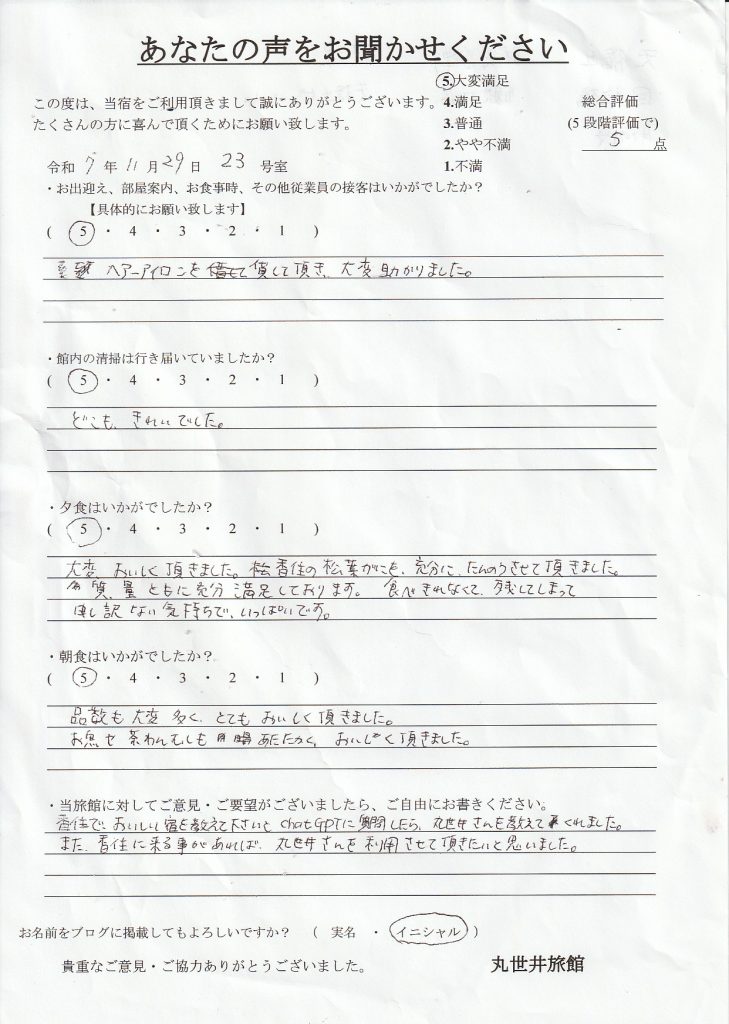 あなたの声をお聞かせください
5.大変満足
この度は、当宿をご利用頂きまして誠にありがとうございます。 4.満足 総合評価
たくさんの方に喜んで頂くためにお願い致します。 3.普通 (5段階評価で)
2.やや不満 5 点
令和 7 年 11 月 29 日 23 号室 1.不満
・お出迎え、部屋案内、お食事時、その他従業員の接客はいかがでしたか?
【具体的にお願い致します】
( 5 ・ 4 ・ 3 ・ 2 ・ 1 )
ヘアーアイロンを 貸して頂き、大変助かりました。
・館内の清掃は行き届いていましたか?
( 5 ・ 4 ・ 3 ・ 2 ・ 1 )
どこも、きれいでした。
・夕食はいかがでしたか?
( 5 ・ 4 ・ 3 ・ 2 ・ 1 )
大変 おいしく頂きました。香住の松葉がにを、充分に、たんのうさせて頂きました。
質、量ともに充分満足しております。 食べきれなくて、残してしまって
申し訳ない気持ちで、いっぱいです。
・朝食はいかがでしたか?
( 5 ・ 4 ・ 3 ・ 2 ・ 1 )
品数も大変多く、とてもおいしく頂きました。
お魚や茶わんむしも あたたかく、おいしく頂きました。
・当旅館に対してご意見・ご要望がございましたら、ご自由にお書きください。
香住で、おいしい宿を教えて下さいとchatGPTに質問したら、丸世井さんを教えてくれました。
また、香住に来る事があれば、丸世井さんを利用させて頂きたいと思いました。
お名前をブログに掲載してもよろしいですか? ( 実名 ・ イニシャル )
貴重なご意見・ご協力ありがとうございました。 丸世井旅館